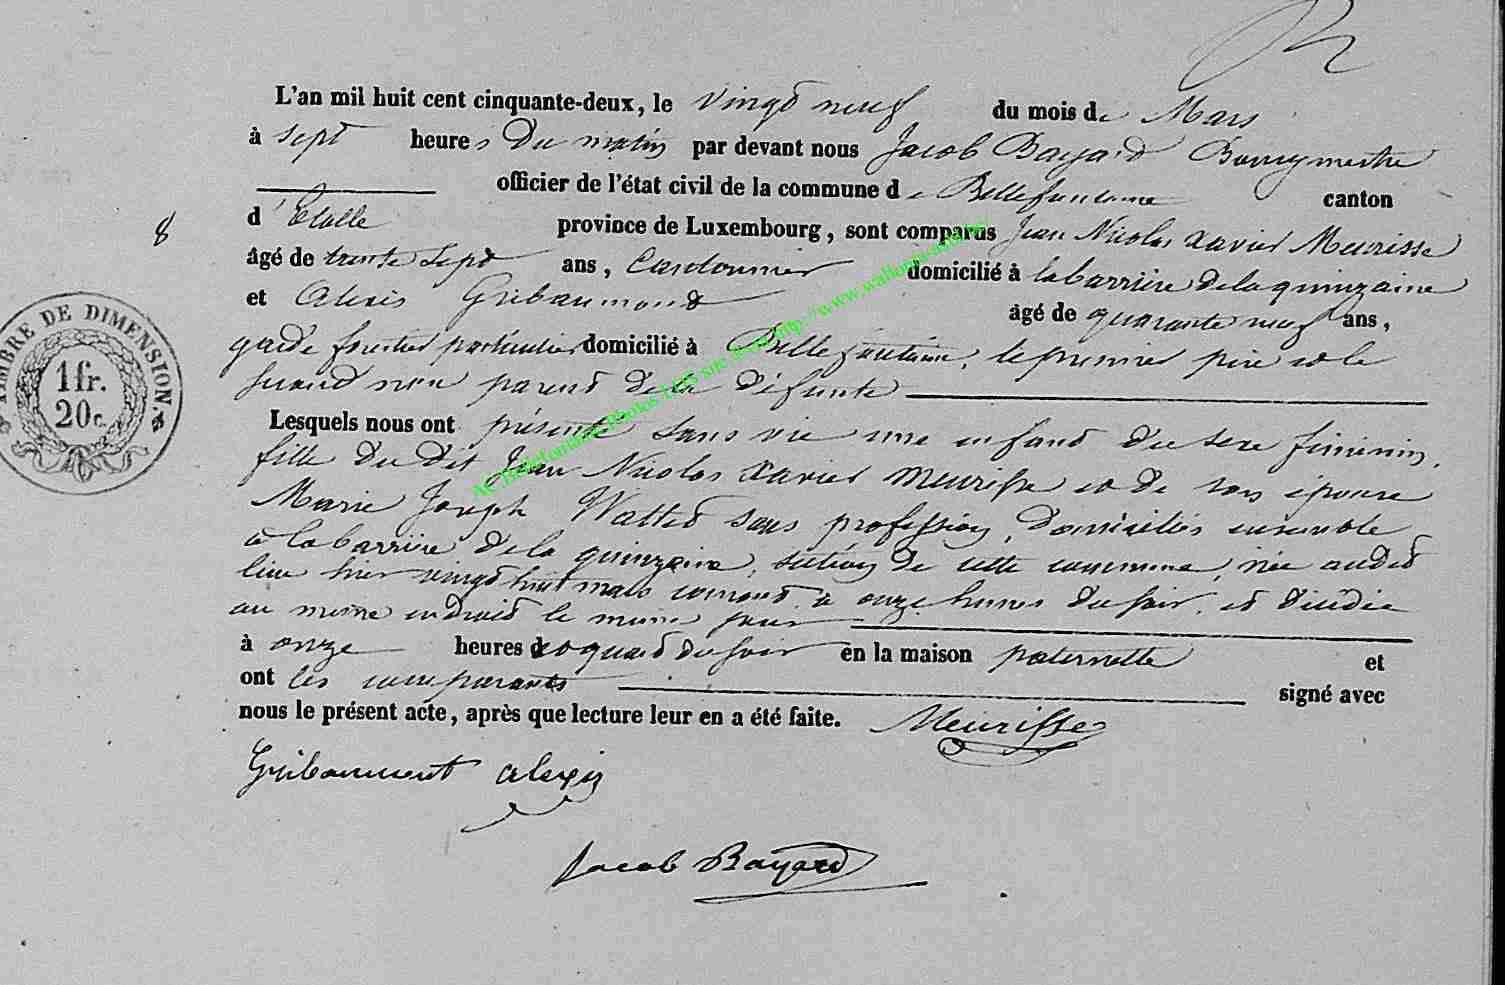 L'an mil huit cent cinquante-deux, le vingt neuf du mois de Mars
à sept heures du matin par devant nous Jacob Bayard Bourgmestre
officier de l'état civil de la commune de Bellefontaine canton
8
d'Etalle province de Luxembourg, sont comparus Jean Nicolas Xavier Meurisse
âgé de trente sept ans, Cantonnier domicilié à la barrière de la quinzaine
et Alexis Gribaumont âgé de quarante neuf ans,
garde forestier particulier domicilié à Bellefontaine, le premier père et le
second non parent de la défunte
Lesquels nous ont présenté sans vie une enfant du sexe féminin,
fille du dit Jean Nicolas Xavier Meurisse et de son épouse
Marie Joseph Watted sans profession, domiciliés ensemble
à la barrière de la quinzaine, section de cette commune, née audit
lieu hier vingt huit mars courant à onze heures du soir, et décédée
au même endroit le même jour
à onze heures et quart du soir en la maison paternelle et
ont les comparants signé avec
nous le présent acte, après que lecture leur en a été faite. Meurisse
Gribaumont alexis
Jacob Bayard
TIMBRE DE DIMENSION.
1 fr.
20 c.
AC Bellefontaine Photos 1105 site http://www.wallonia-asbl.be/